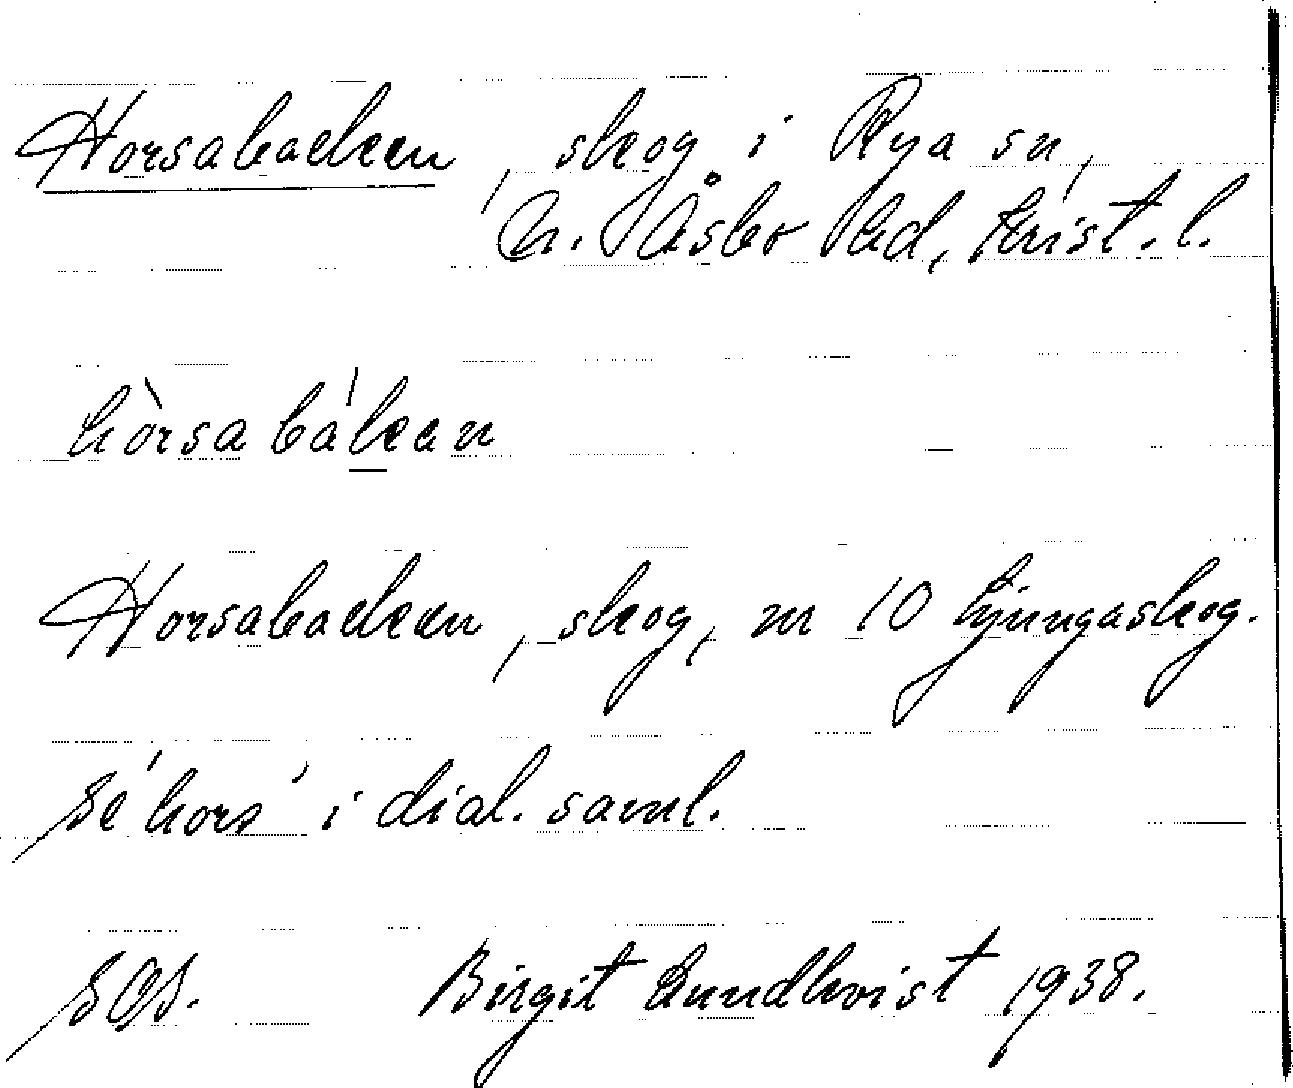 Horsabacken, skog i Rya sn,
N. Åsbo hd, Krist. l.
hòrsabákan
Horsabacken, skog, nr 10 Ljungaskog.
Se 'hors' i dial. saml.
Birgit Lundkvist 1938.